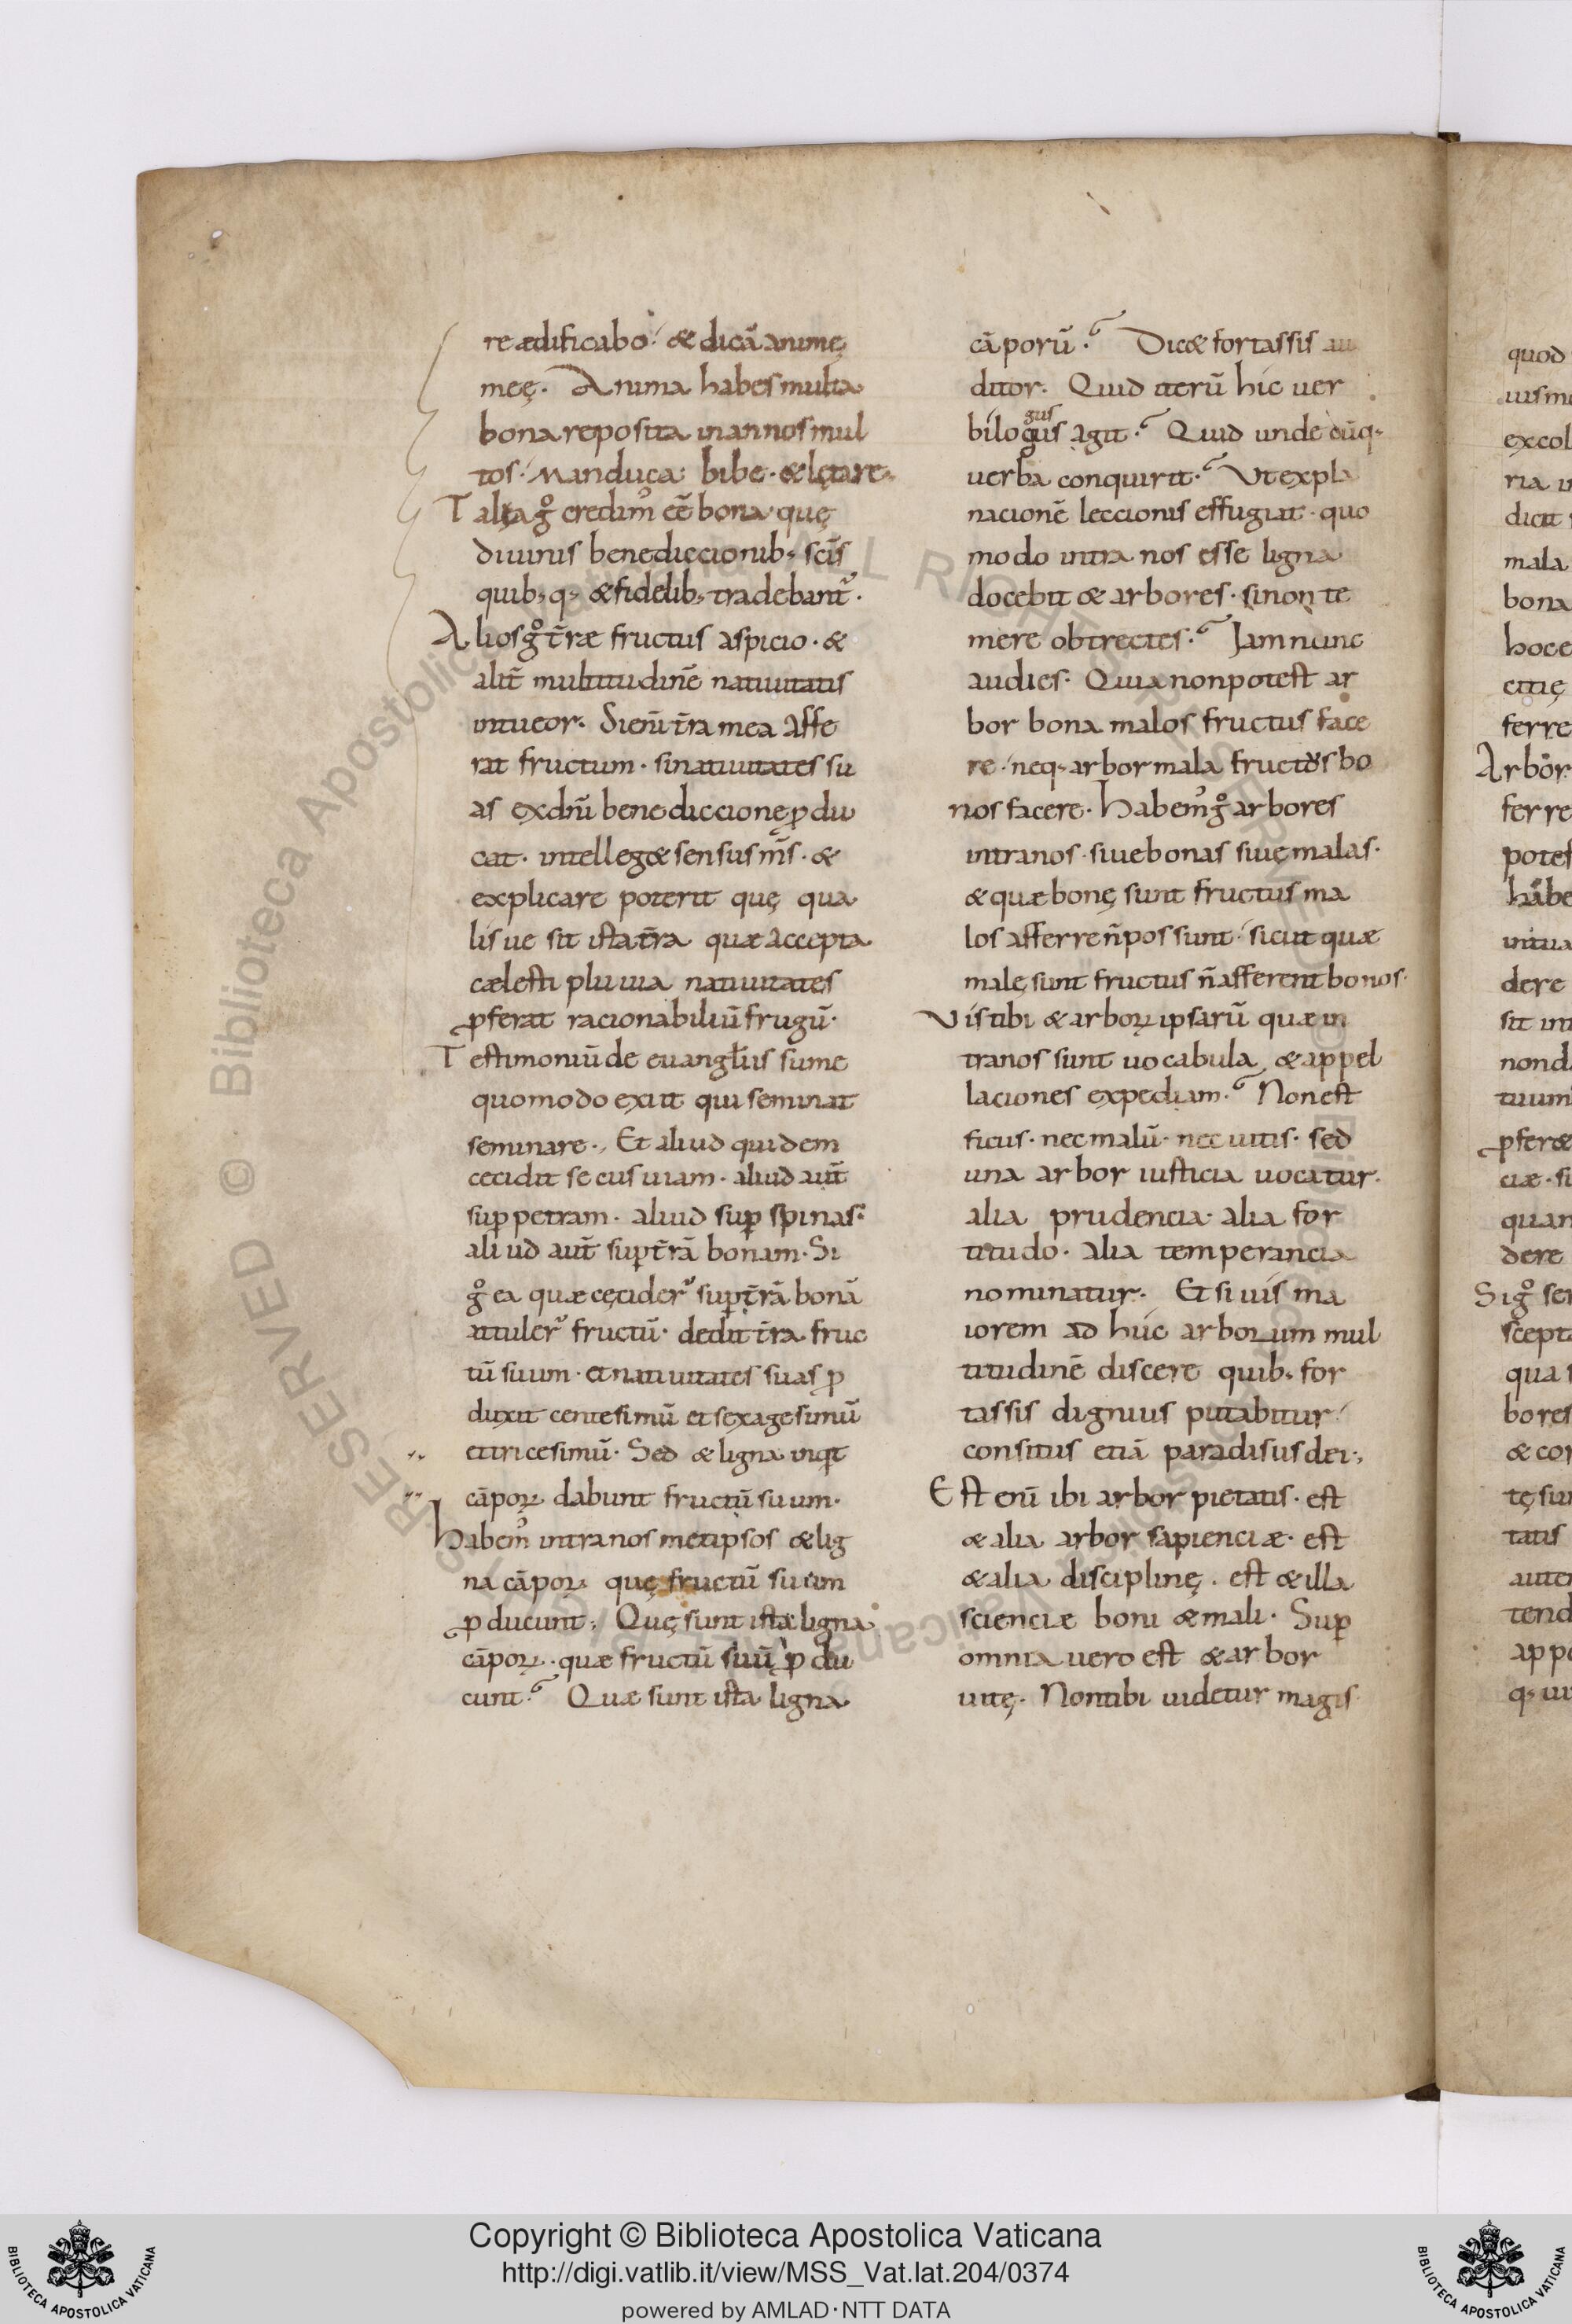 reædificabo· & dicā animę
meę· Anima habes multa
bona reposita in annos mul
tos· Manduca· bibe· & lętare·
Talia gͦ credimꝰ eē bona quę
diuinis benediccionib; scīs
quib;q; & fidelib; tradebant᷑·
Alios gͦ t̄ræ fructus aspicio· &
alit̄ multitudinē natiuitatis
intueor· Si enī t̄ra mea affe
rat fructum· si natiuitates su
as ex dn̄i benediccione ꝓdu
cat· intelleg& sensus m̄s· &
explicare poterit quę qua
lis ue sit ista t̄ra quæ accepta
cælesti pluuia natiuitates
ꝓferat racionabiliū frugū·
Testimoniū de euangłiis sume
quomodo exiit qui seminat
seminare·, Et aliud quidem
cecidit secus uiam· aliud aut̄
suꝑ petram· aliud suꝑ spinas·
aliud aut̄ suꝑ t̄rā bonam· Si
gͦ ea quæ cęcider̄ suꝑ t̄rā bonā
attuler̄ fructū· dedit t̄ra fruc
tū suum· et natiuitates suas ꝓ
duxit centesimū et sexagesimū
et tricesimū· Sed & ligna inqͥt
cāpoꝝ dabunt fructū suum·
Habemꝰ intra nos metipsos & lig
na cāpoꝝ quę fructū suum
ꝓducunt; Quę sunt ista ligna
cāpoꝝ· quæ fructū suū ꝓdu
cunt? Quæ sunt ista ligna
cāporū? Dic& fortassis au
ditor· Quid iterū hic uer
gus
bilogius agit? Quid undecūq;
uerba conquirit? Ut expla
nacionē leccionis effugiat· quo
modo intra nos esse ligna
docebit & arbores· si non te
mere obtrectes? Iam nunc
audies· Quia non potest ar
bor bona malos fructus face
re· neq; arbor mala fructus bo
nos facere· Habemꝰ gͦ arbores
intra nos· siue bonas siuę malas·
& quæ bonę sunt fructus ma
los afferre n̄ possunt· sicut quæ
malę sunt fructus n̄ afferent bonos·
Vis tibi & arboꝝ ipsarū quæ in
tra nos sunt uocabula & appel
laciones expediam? Non est
ficus· nec malū· nec uitis· sed
una arbor iusticia uocatur·
alia prudencia· alia for
titudo· alia temperancia
nominatur· Et si uis ma
iorem ad huc arborum mul
titudinē discere quib; for
tassis dignius putabitur
consitus etiā paradisus dei·,
Est enī ibi arbor pietatis· est
& alia arbor sapienciæ· est
& alia disciplinę· est & illa
scienciæ boni & mali· Suꝑ
omnia uero est & arbor
uitę· Non tibi uidetur magis
quod
excol
ria
dicit
mala
bona
ferre
Arbor
ferre
potes
habe
dere
sit
tuum
ꝓfer&
quan
dere
qua
bores
tatis
Copyright © Biblioteca Apostolica Vaticana
http://digi.vatlib.it/view/MSS_Vat.lat.204/0374
powered by AMLAD·NTT DATA
BIBLIOTECA APOSTOLICA VATICANA
BIBLIOTECA APOSTOLICA VATICANA